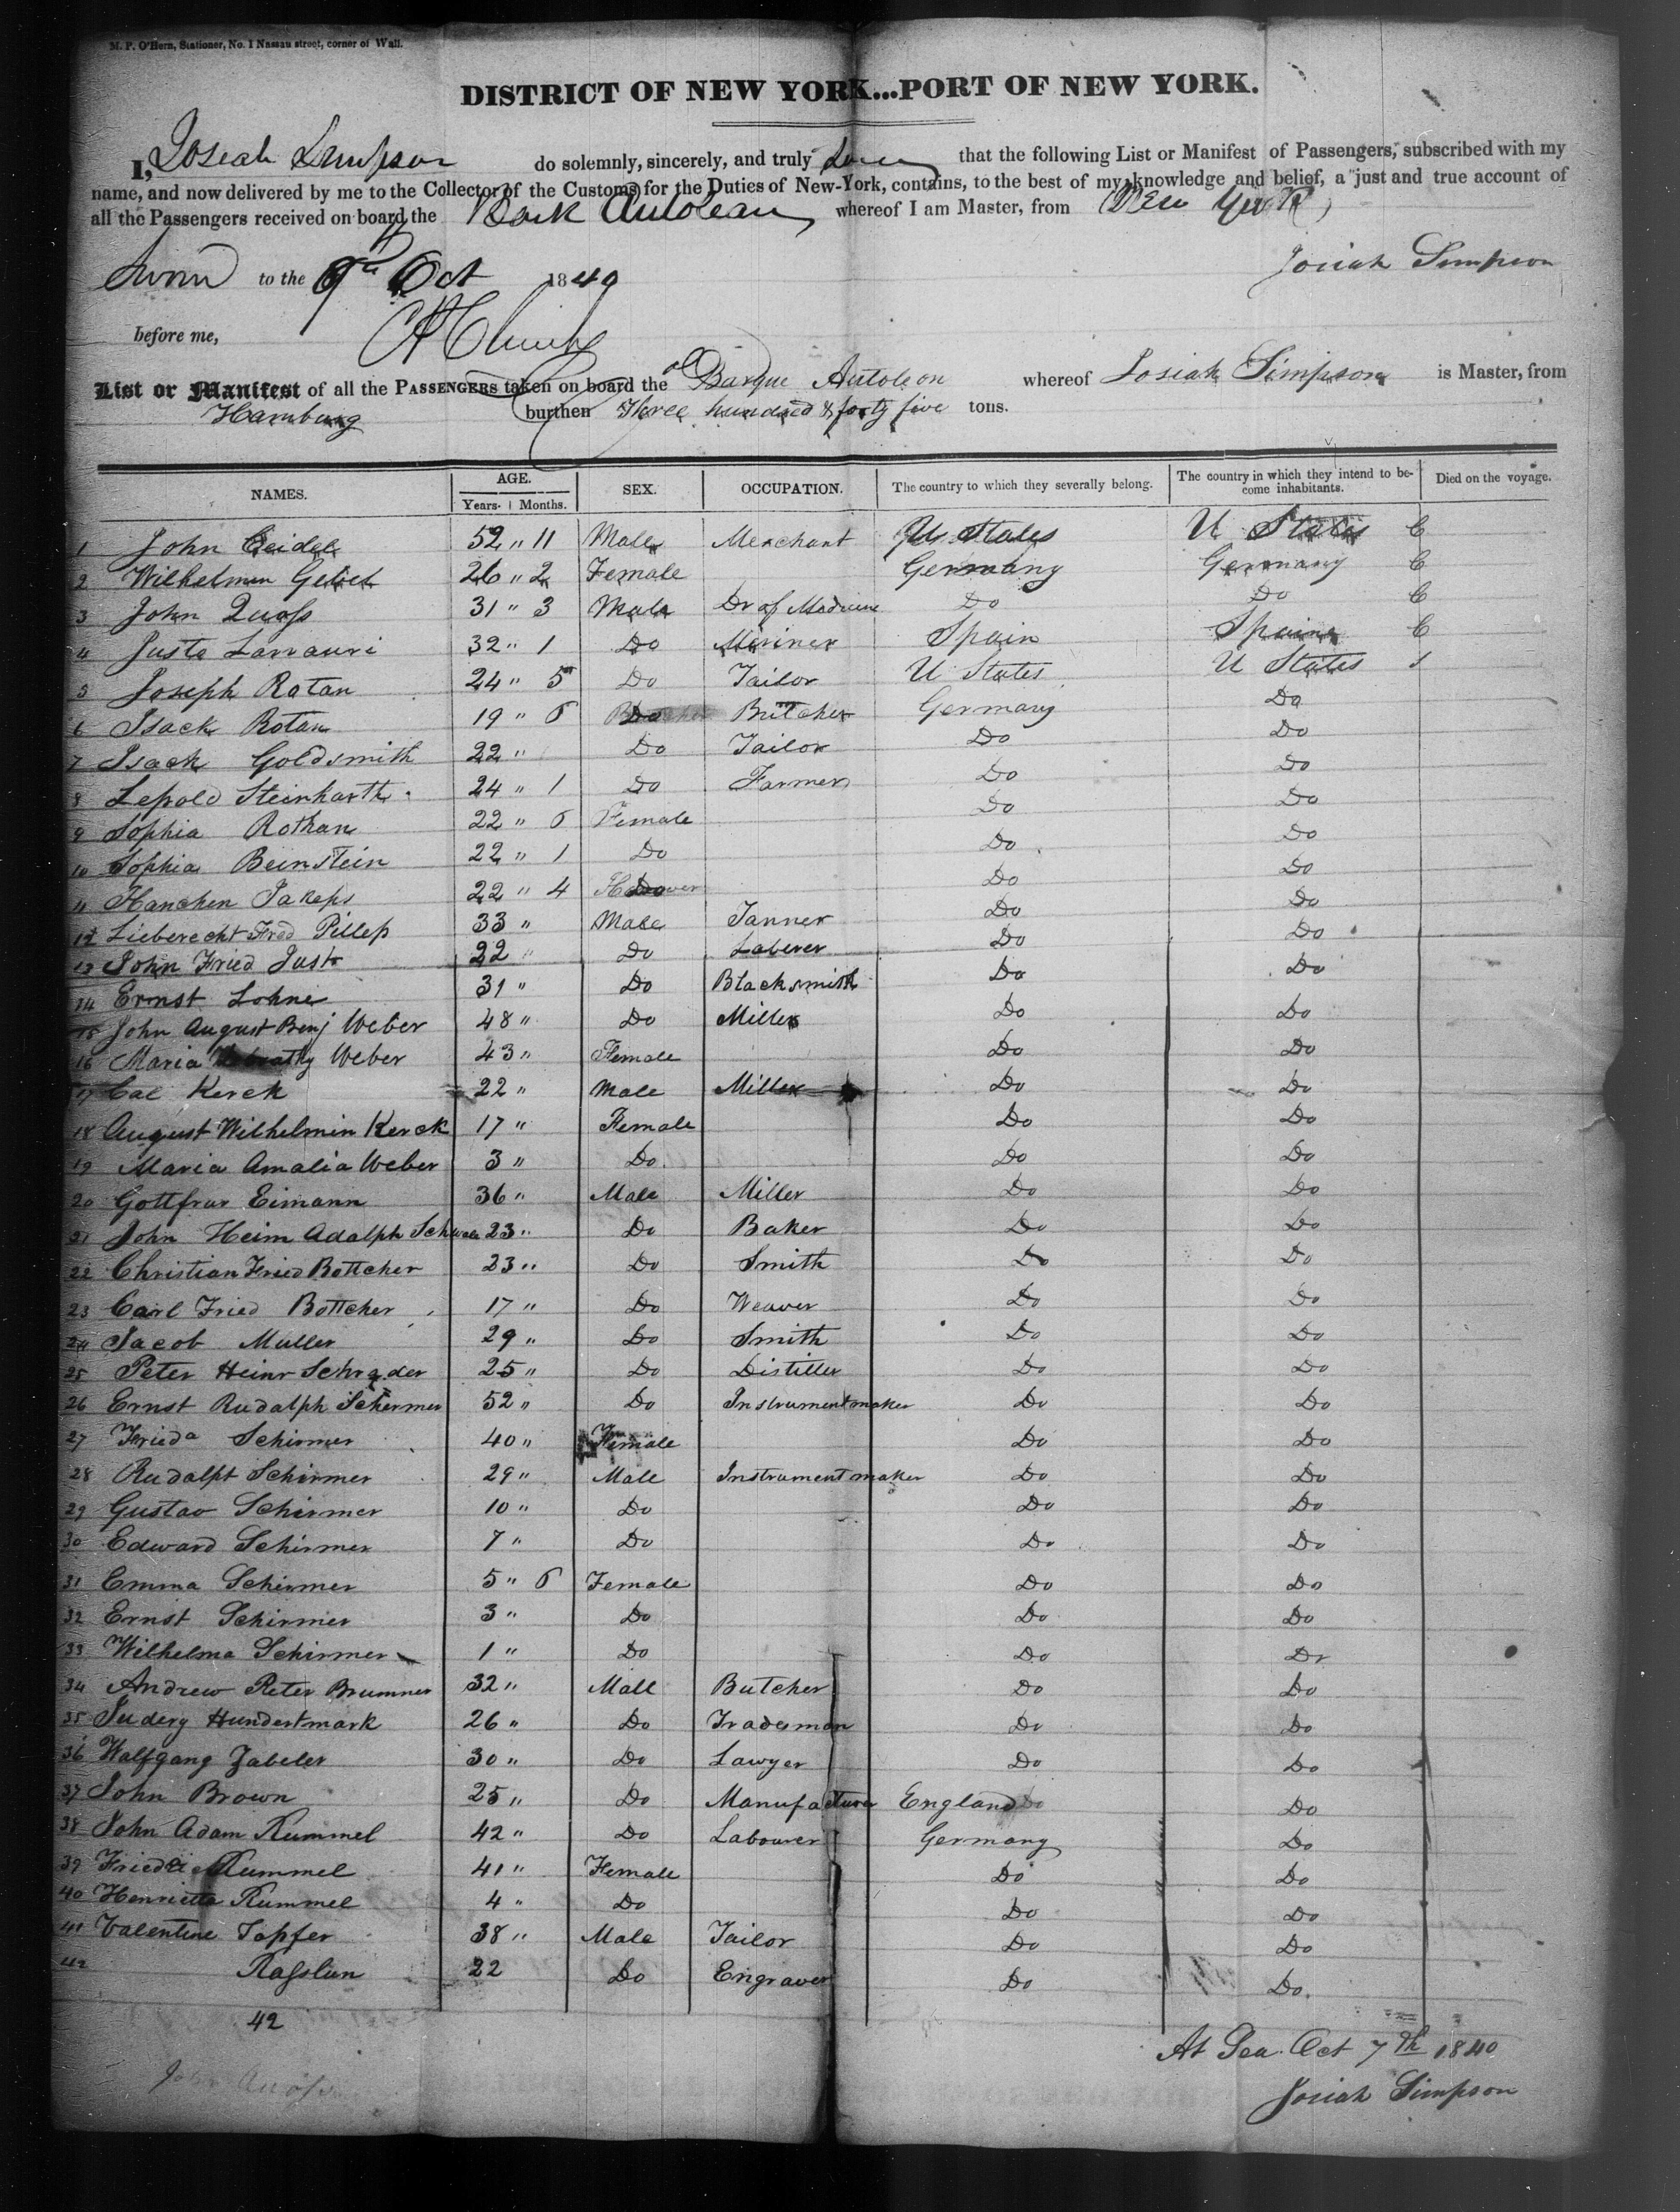 M. P. O'Hern, Stationer, No. 1 Nassau street, corner of Wall.
DISTRICT OF NEW YORK...PORT OF NEW YORK.
I, Josiah Simpson do solemnly, sincerely, and truly that the following List or Manifest of Passengers, subscribed with my
name, and now delivered by me to the Collector of the Customs for the Duties of New-York, contains, to the best of my knowledge and belief, a just and true account of
all the Passengers received on board the Bark Autoleon whereof I am Master, from New York
Sworn to the 9th Oct 1840 Josiah Simpson
before me,
List or Manifest of all the PASSENGERS taken on board the Barque Autoleon whereof Josiah Simpson is Master, from
Hamburg burthen Three hundred & forty five tons.
NAMES. AGE. Years. Months. SEX. OCCUPATION. The country to which they severally belong. The country in which they intend to become inhabitants. Died on the voyage.
1 John 52 " 11 Male Merchant U States U States C
2 Wilhelmin 26 " 2 Female Germany Germany C
3 John Quoss 31 " 3 Male Dr of Medicine Do Do C
4 Justo Larrauri 32 " 1 Do Mariner Spain Spain C
5 Joseph Rotan 24 " 5 Do Tailor U States U States
6 Isack Rotan 19 " 6 Do Butcher Germany Do
7 Isack Goldsmith 22 " Do Tailor Do Do
8 Lepold Steinharth 24 " 1 Do Farmer Do Do
9 Sophia Rothan 22 " 6 Female Do Do
10 Sophia Beinstein 22 " 1 Do Do Do
11 Hanchen Jakeps 22 " 4 Do Do Do
12 Lieberecht Fred Pillep 33 " Male Tanner Do Do
13 John Fried Just 22 " Do Laberer Do Do
14 Ernst Lohne 31 " Do Blacksmith Do Do
15 John August Benj Weber 48 " Do Miller Do Do
16 Maria Weber 43 " Female Do Do
17 Cal Kerck 22 " Male Miller Do Do
18 August Wilhelmin Kerck 17 " Female Do Do
19 Maria Amalia Weber 3 " Do Do Do
20 Gottfrar Eimann 36 " Male Miller Do Do
21 John Heim Adalph Schwale 23 " Do Baker Do Do
22 Christian Fried Bottcher 23 " Do Smith Do Do
23 Carl Fried Bottcher 17 " Do Weaver Do Do
24 Jacob Muller 29 " Do Smith Do Do
25 Peter Heinr Schrader 25 " Do Distiller Do Do
26 Ernst Rudalph Schermer 52 " Do Instrumentmaker Do Do
27 Frieda Schirmer 40 " Female Do Do
28 Rudalph Schirmer 29 " Male Instrumentmaker Do Do
29 Gustav Schirmer 10 " Do Do Do
30 Edward Schirmer 7 " Do Do Do
31 Emma Schirmer 5 " 6 Female Do Do
32 Ernst Schirmer 3 " Do Do Do
33 Wilhelma Schirmer 1 " Do Do Do
34 Andrew Peter Brummer 32 " Male Butcher Do Do
35 Juderg Hundertmark 26 " Do Tradesman Do Do
36 Walfgang Zabeler 30 " Do Lawyer Do Do
37 John Brown 25 " Do Manufacturer England Do
38 John Adam Rummel 42 " Do Labourer Germany Do
39 Rummel 41 " Female Do Do
40 Henrietta Rummel 4 " Do Do Do
41 Valentine Topfer 38 " Male Tailor Do Do
42 22 Do Engraver Do Do
42
At Sea. Oct 7th 1840
Josiah Simpson